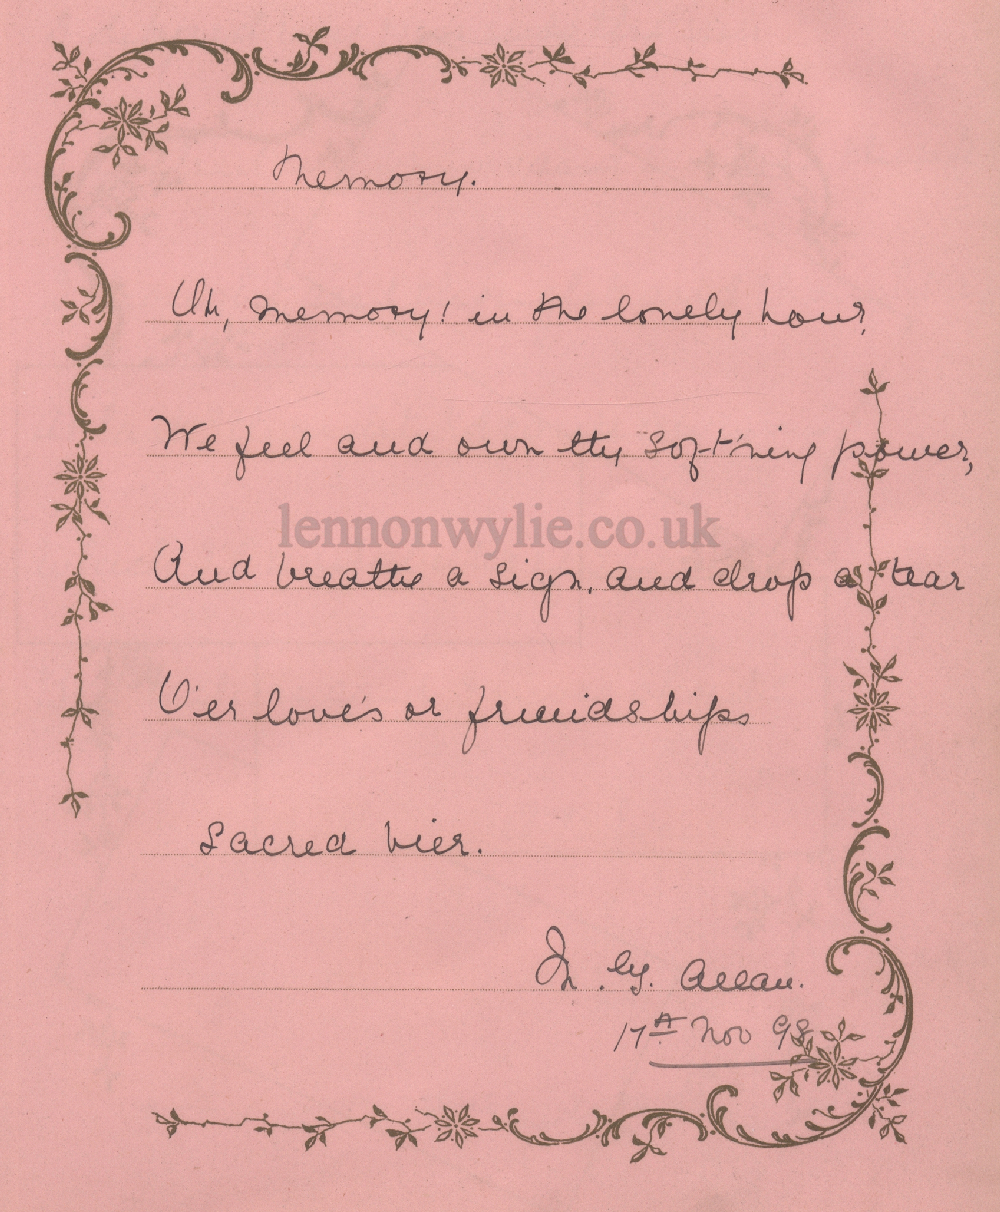 Memory.
Oh, memory! in the lonely hour,
We feel and own thy soft'ning power,
lennonwylie.co.uk
And breathe a sigh, and drop a tear
O'er love's or friendships
Sacred bier.
Allan.
17th Nov 98